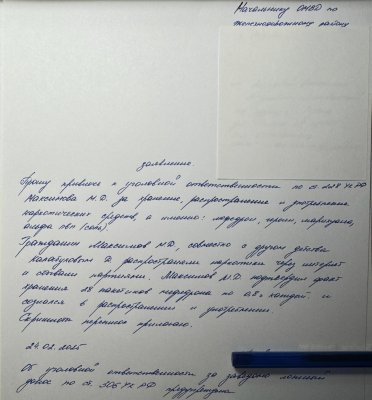 Начальнику ОМВД по
Железнодорожному району
заявление.
Прошу привлечь к уголовной ответственности по ст. 228 УК РФ
Максимова М.Д. за хранение, распространение и употребление
наркотических средств, а именно: мефедрон, героин, марихуана,
альфа пвп (соль).
Гражданин Максимов М.Д. совместно с другом детства
Д. распространяли наркотики через интернет
и оптовыми партиями. Максимов М.Д. подтвердил факт
хранения 28 пакетиков мефедрона по 0,5г каждый и
сознался в распространении и употреблении.
Скриншоты переписок прилагаю.
24.02.2025
Об уголовной ответственности за заведомо ложный
донос по ст. 306 УК РФ предупреждена